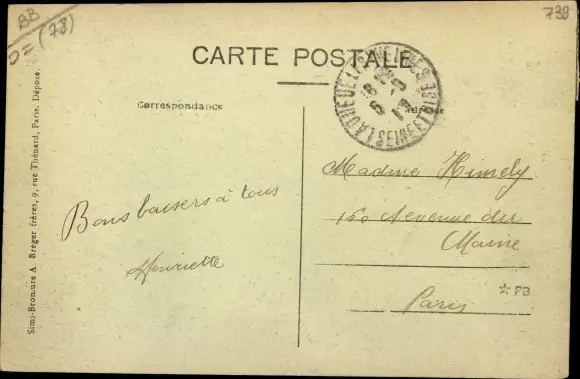 BB
(78)
739
CARTE POSTALE
Correspondance
Adresse
LA QUEUE LES YVELINES
SEINE ET OISE
Bons baisers à tous
Henriette
Madme Himely
160 Avenue du
Maine
Paris
☆ FB
Simi-Bromure A. Breger frères, 9, rue Thénard, Paris. Déposé.